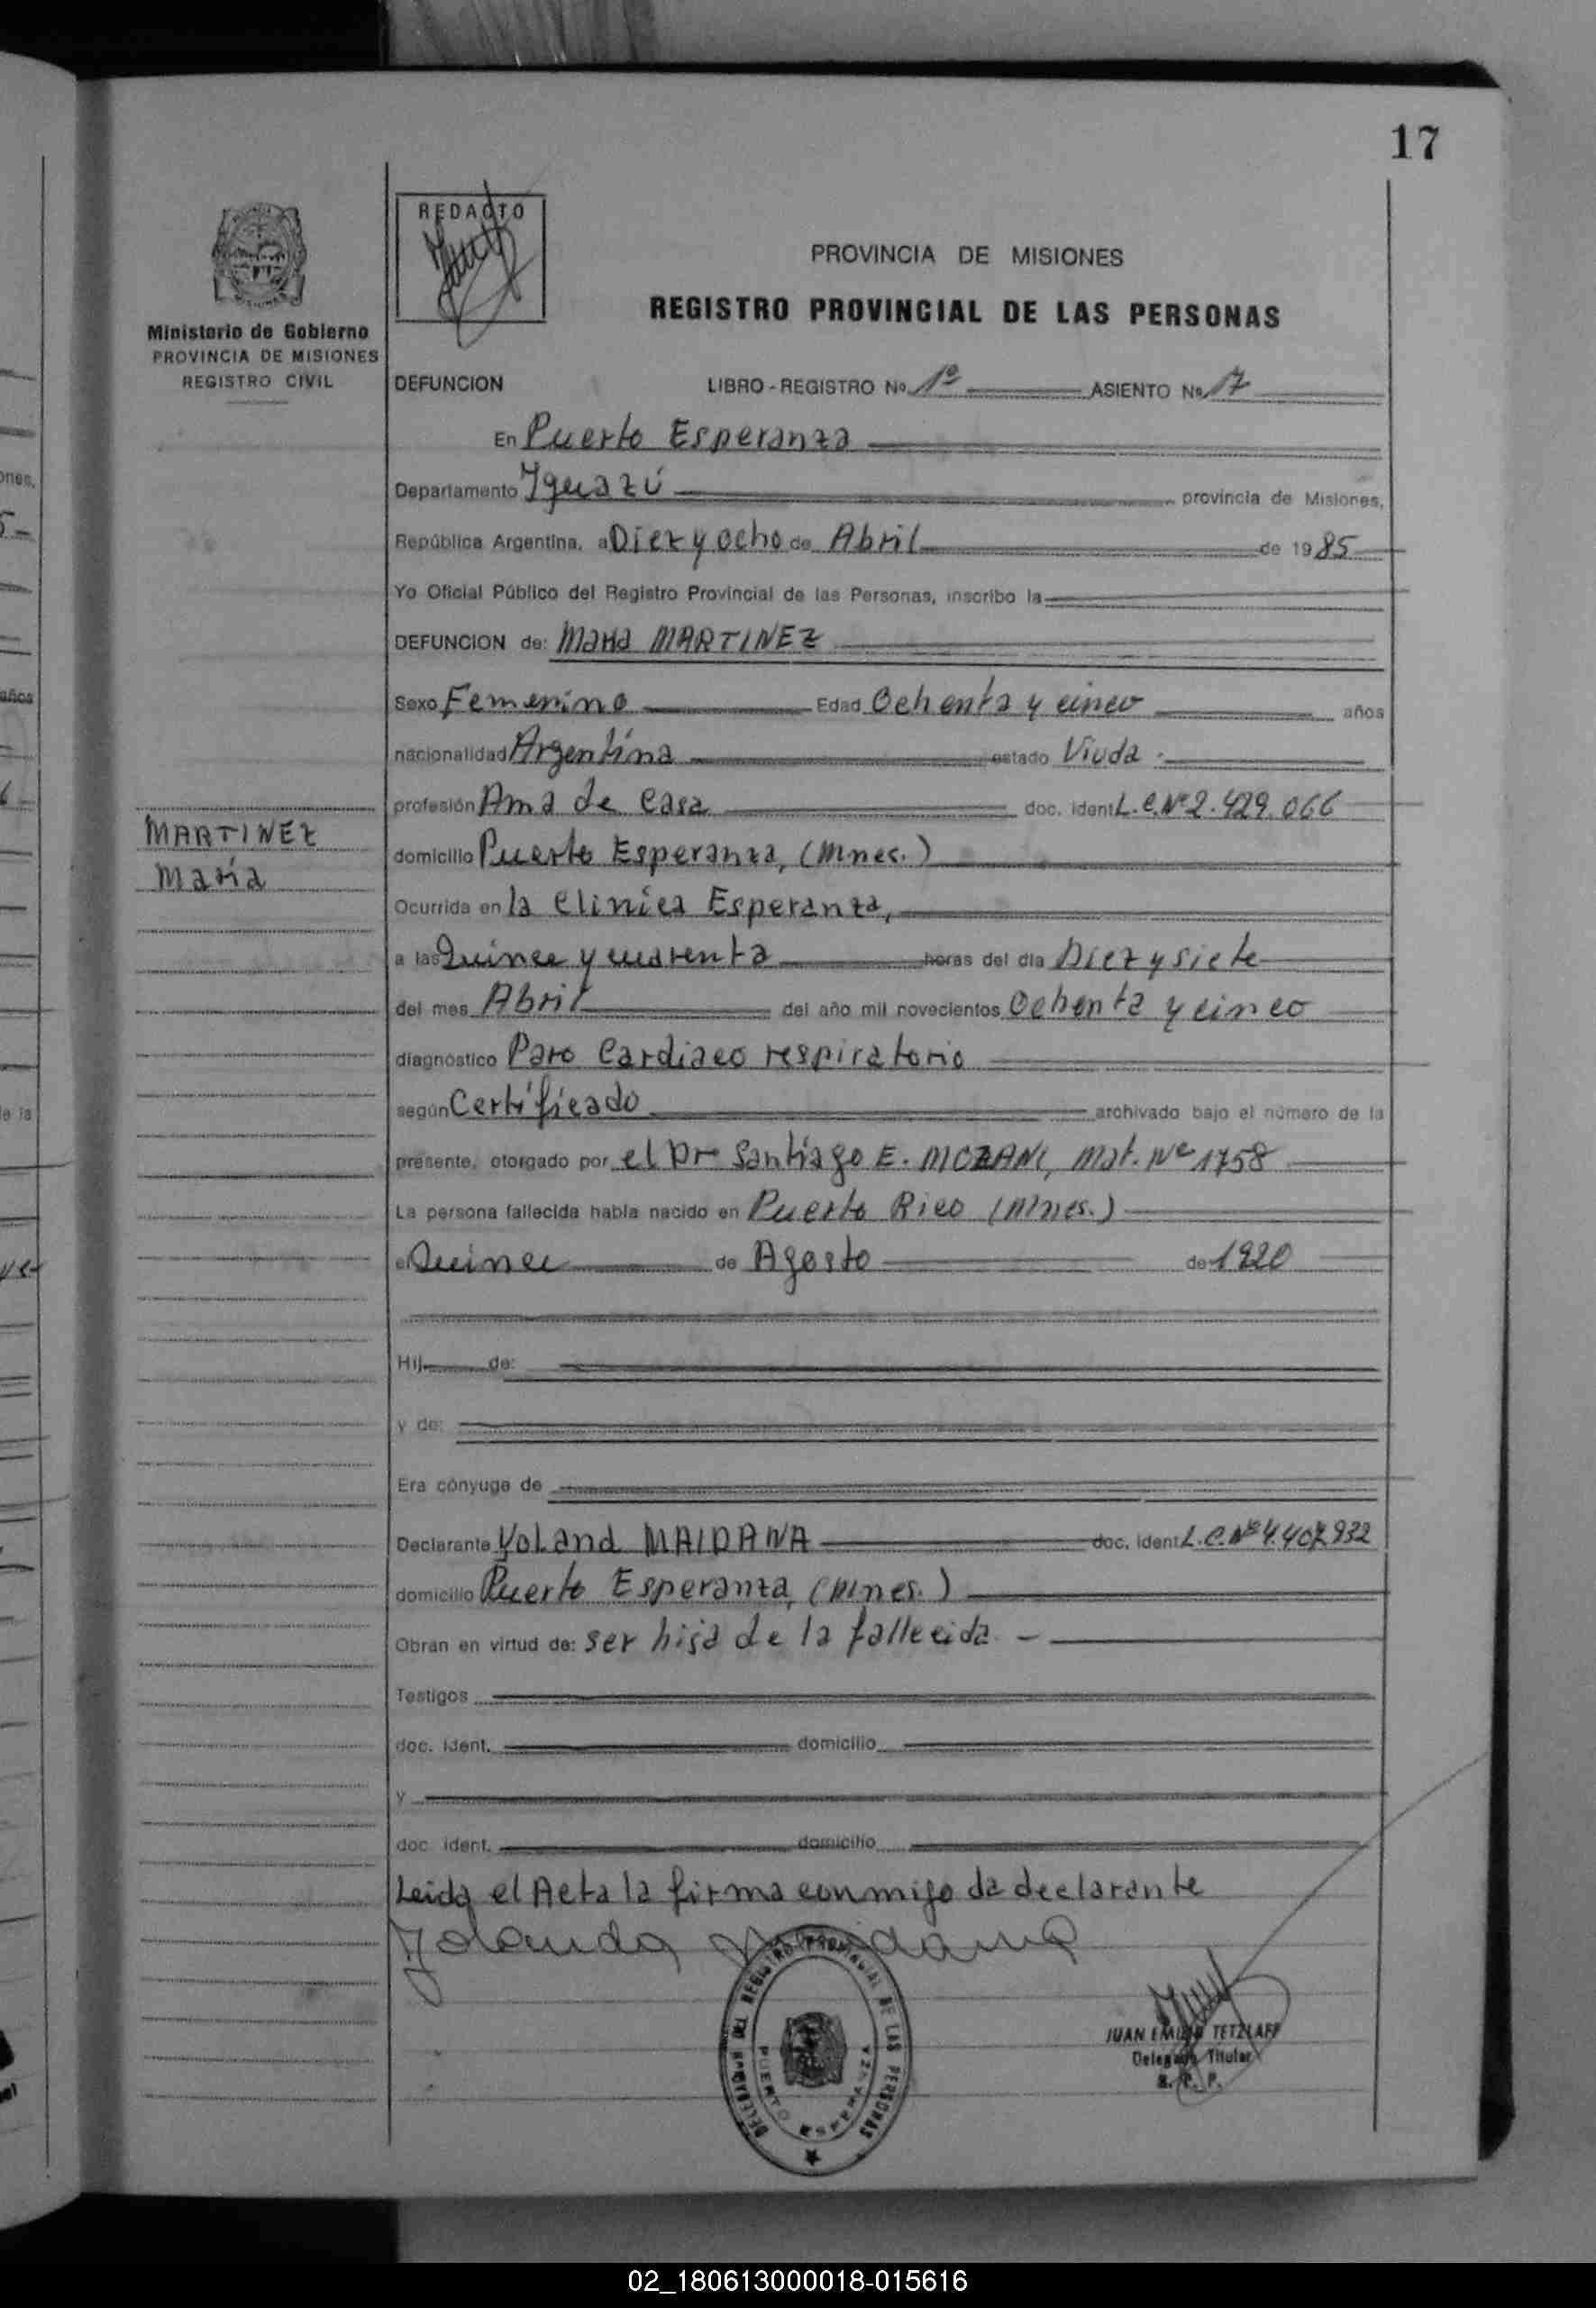 17
REDACTO
PROVINCIA DE MISIONES
REGISTRO PROVINCIAL DE LAS PERSONAS
Ministerio de Gobierno
PROVINCIA DE MISIONES
REGISTRO CIVIL
DEFUNCION LIBRO - REGISTRO No 1º ASIENTO No 17
En Puerto Esperanza
Departamento Iguazú provincia de Misiones,
República Argentina, a Diez y ocho de Abril de 1985
Yo Oficial Público del Registro Provincial de las Personas, inscribo la
DEFUNCION de: María MARTINEZ
Sexo Femenino Edad Ochenta y cinco años
nacionalidad Argentina estado Viuda
profesión Ama de Casa doc. ident. L.C.Nº 2.429.066
MARTINEZ
María
domicilio Puerto Esperanza, (Mnes.)
Ocurrida en la Clinica Esperanza,
a las Quince y cuarenta horas del día Diez y siete
del mes Abril del año mil novecientos Ochenta y cinco
diagnóstico Paro Cardiaco respiratorio
según Certificado archivado bajo el número de la
presente, otorgado por el Dr Santiago E. Mat. Nº 1758
La persona fallecida había nacido en Puerto Rico (Mnes.)
el Quince de Agosto de
Hij de:
y de:
Era cónyuge de
Declarante Yoland MAIDANA doc. ident. L.C.Nº 4.407.932
domicilio Puerto Esperanza, (Mnes.)
Obran en virtud de: ser hija de la fallecida. -
Testigos
doc. ident. domicilio
y
doc. ident. domicilio
Leida el Acta la firma conmigo la declarante
Yolanda Maidana
DELEGACION DEL REGISTRO PROVINCIAL DE LAS PERSONAS
PUERTO ESPERANZA
JUAN EMILIO TETZLAFF
Delegado Titular
R. P. P.
02_180613000018-015616